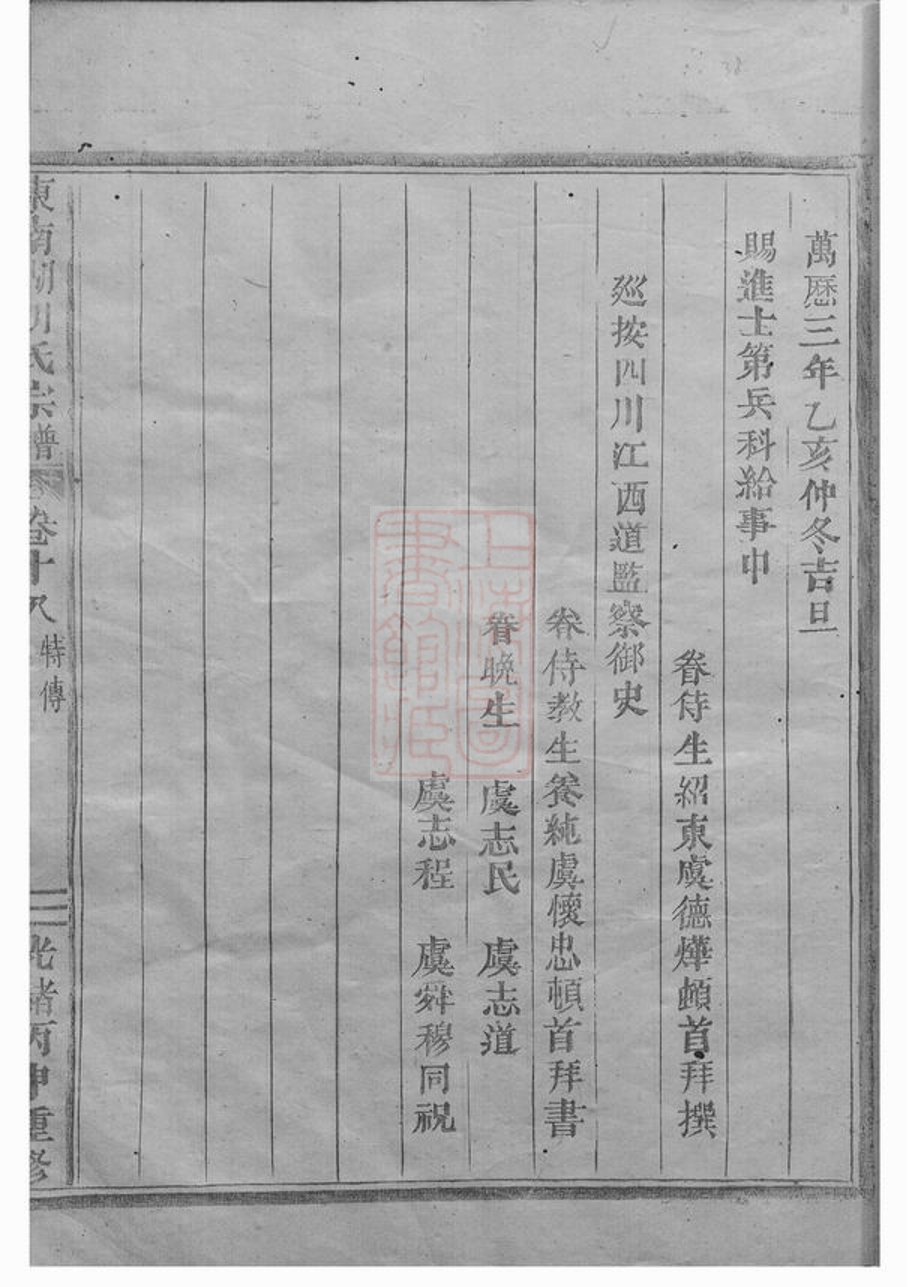 萬厯三年乙亥仲冬吉旦
賜進士第兵科給事中
眷侍生紹東虞德燁頓首拜撰
廵按四川江西道監察御史
眷侍教生養純虞懷忠頓首拜書
眷晩生 虞志民 虞志道
虞志程 虞舜穆同祝
東南湖川氏宗譜 卷十八 特傳 二 光緒丙申重修
上海圖書館藏